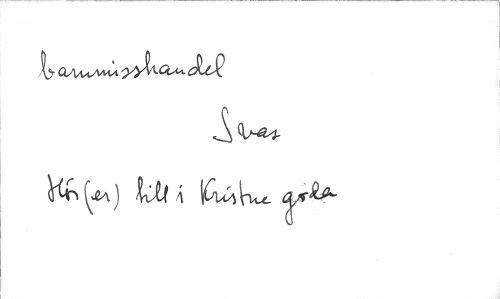 barnmisshandel
Svas
Hör(er) till i Kristne göda